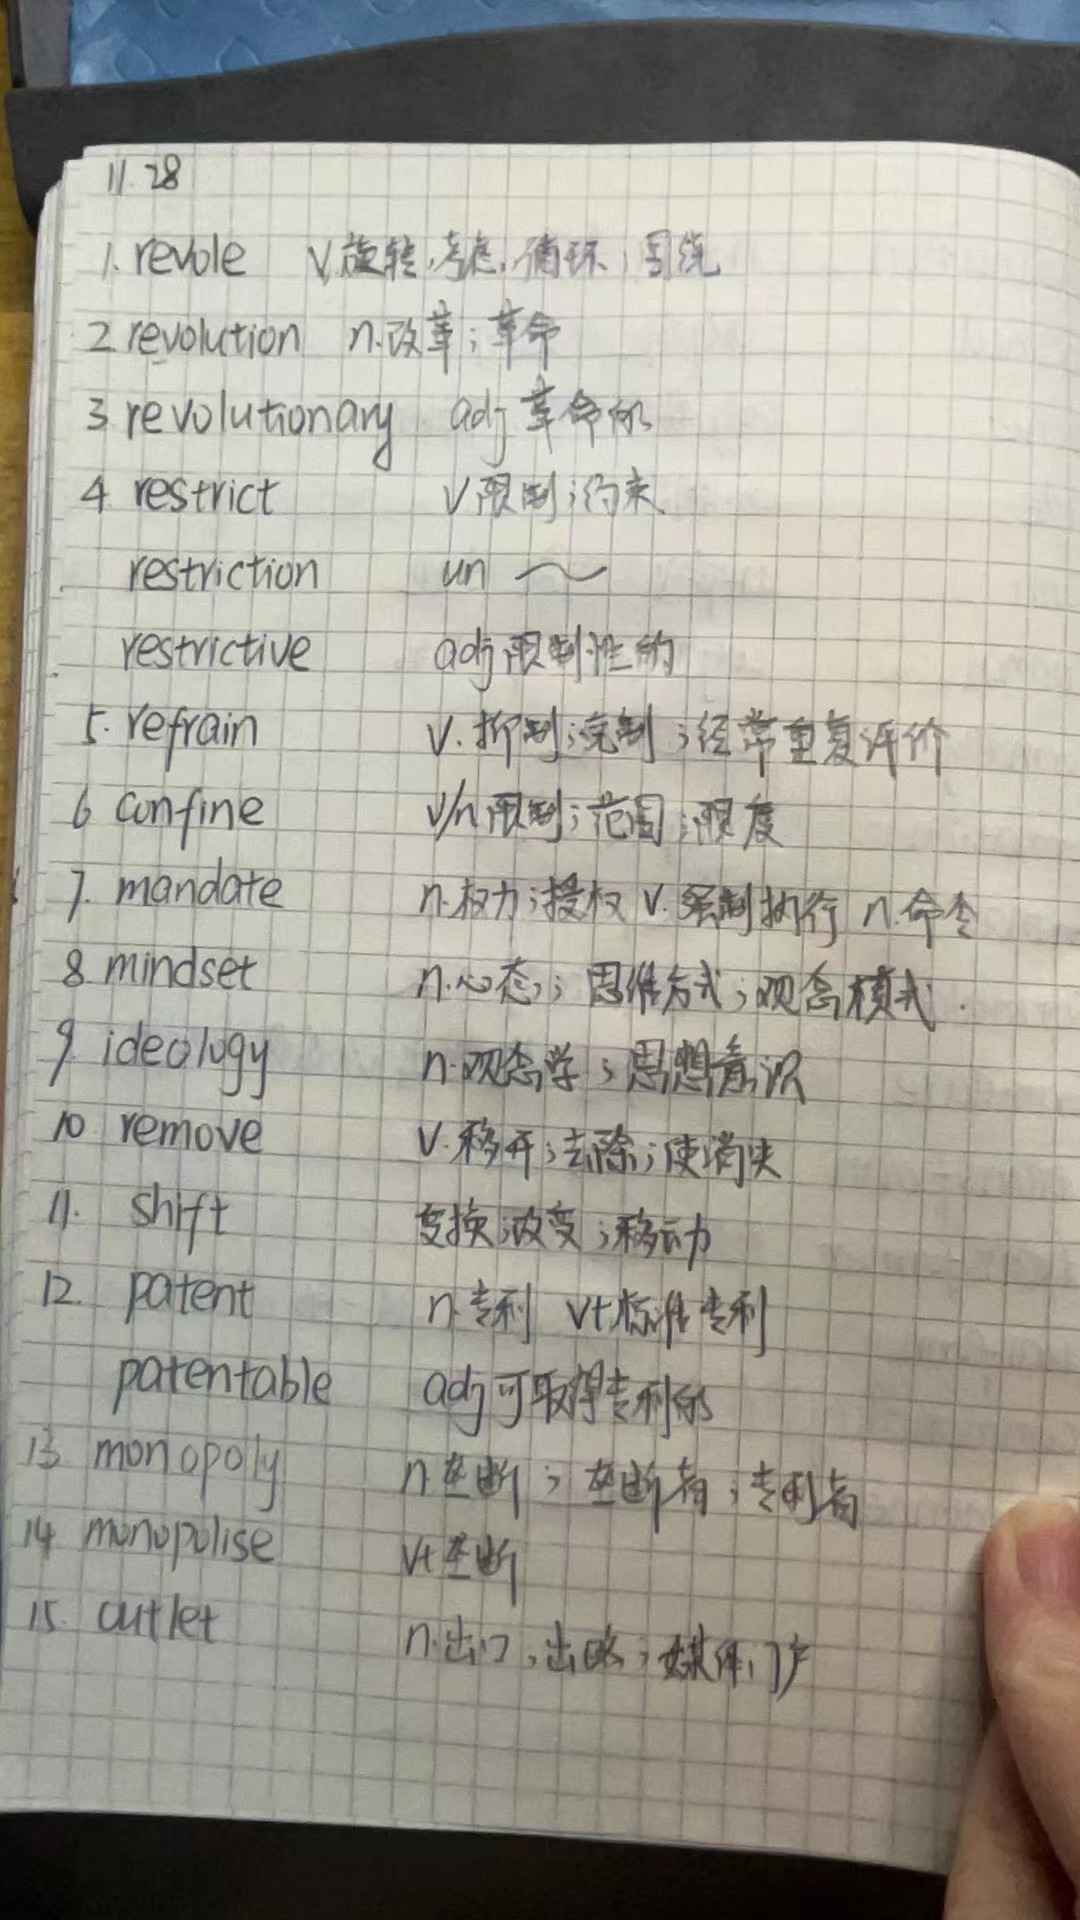 11.28
1. revole v.旋转,考虑,循环;围绕
2 revolution n.改革;革命
3 revolutionary adj 革命的
4 restrict v 限制;约束
restriction un ～
restrictive adj 限制性的
5. refrain v.抑制;克制;经常重复评价
6 confine v/n 限制;范围;限度
7. mandate n.权力;授权 v.强制执行 n.命令
8. mindset n.心态;思维方式;观念模式.
9 ideology n.观念学;思想意识
10 remove v.移开;去除;使消失
11. shift 变换;改变;移动
12. patent n.专利 vt标准专利
patentable adj 可取得专利的
13 monopoly n.垄断;垄断者;专利者
14 monopolise vt垄断
15. outlet n.出口;出路;媒体门户